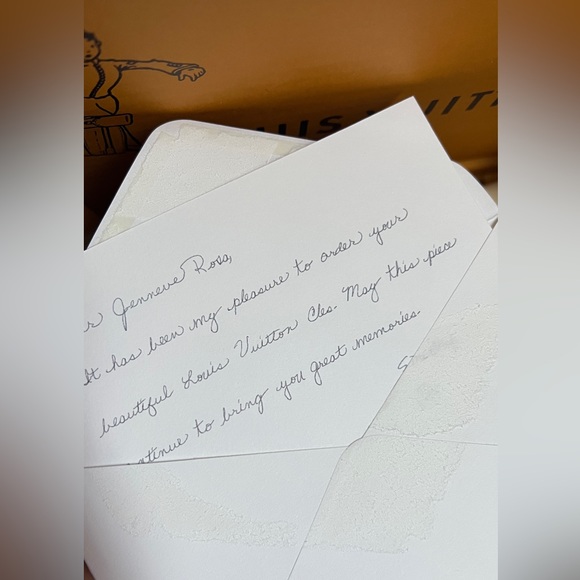 UIS VUIT
r Jenneve Rosa,
It has been my pleasure to order your
beautiful Louis Vuitton Cles. May this piece
ntinue to bring you great memories.